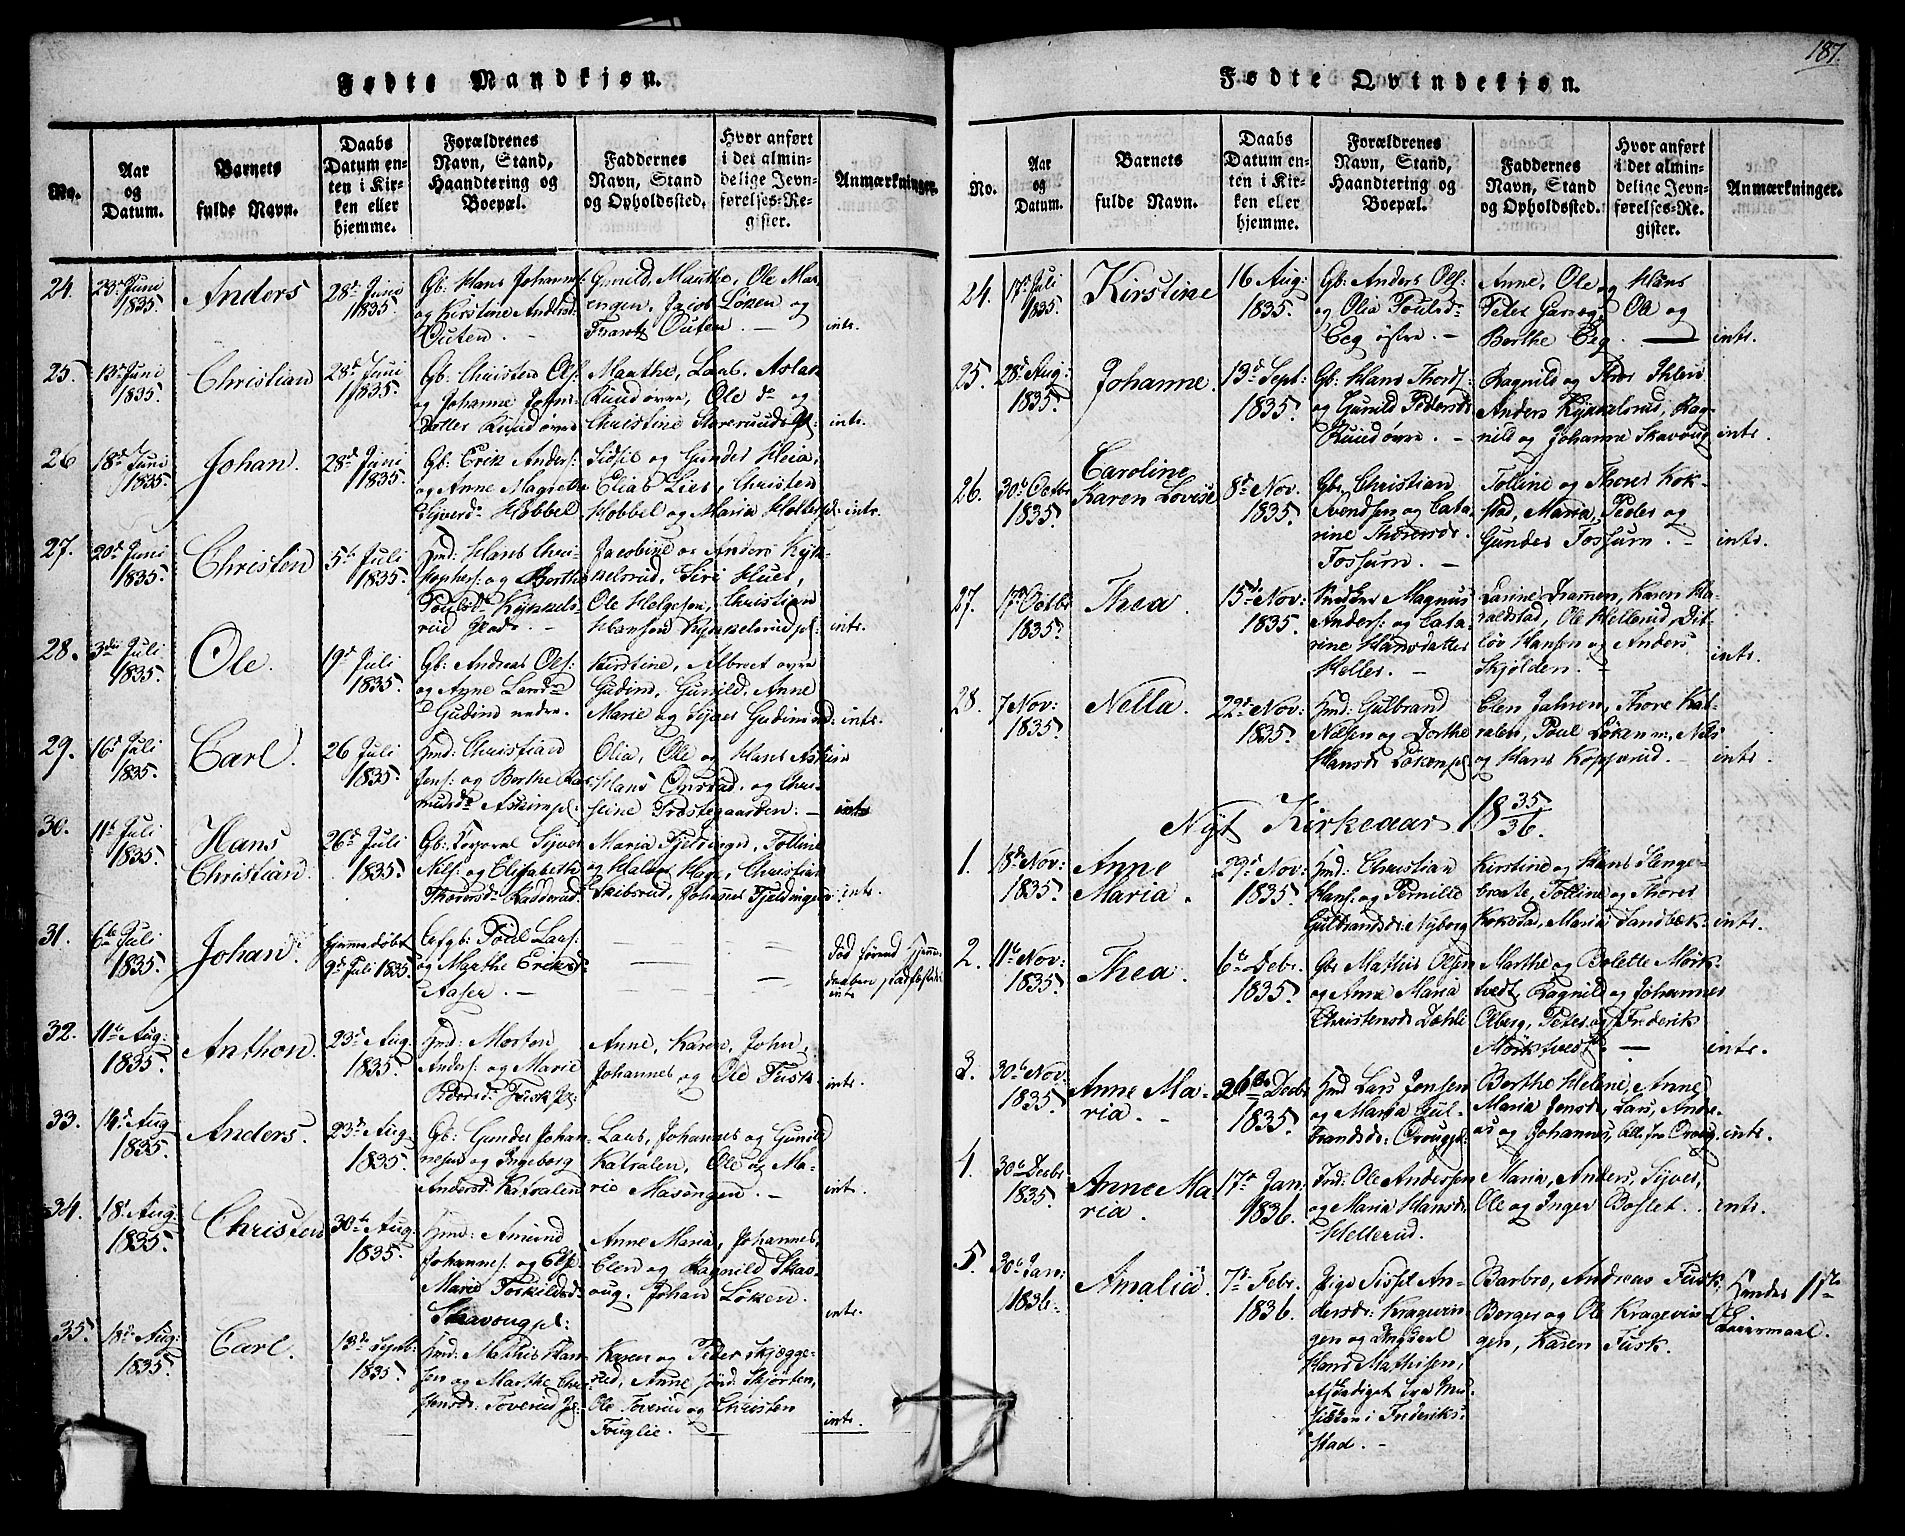 187.
Fødte Mandkjøn.
No.
Aar
og
Datum.
Barnets
fulde Navn.
Daabs
Datum en-
ten i Kir-
ken eller
hjemme.
Forældrenes
Navn, Stand,
Haandtering og
Boepæl.
Faddernes
Navn, Stand
og Opholdssted.
Hvor anført
i det almin-
delige Jevn-
førelses-Re-
gister.
Anmærkninger.
24.
23de Juni
1835.
Anders
28de Juni
1835.
Gb: Hans Johannes:
og Kirstine Andersd:
Outen. -
Gunild, Marthe, Ole Mas-
engen, Jacob Løken og
Frantz Outen. -
intr.
25.
13de Juni
1835.
Christian
28de Juni
1835.
Gb: Christen Ols:
og Johanne John-
dotter Ruud øvre
Marthe, Lars, Aslak
Ruud øvre, Ole do og
Christine
intr.
26
18de Juni
1835.
Johan.
28de Juni
1835.
Gb: Erik Anders:
og Anne Magrethe
Syverd: Hobbel
Sidsie og Gunder Heia,
Elias Lier, Christen
Hobbel og Maria
intr.
27.
20de Juni
1835.
Christen
5te Juli
1835.
Hmd: Hans Chri-
stophers: og Berthe
Poulsd: Kykkels-
rud
Jacobine og Anders Kyk-
kelsrud, Siri Huer,
Ole Helgesen, Christian
Hansen Kykkelsrud pl:
intr.
28.
3die Juli
1835.
Ole.
19de Juli
1835.
Gb: Andreas Ols:
og Anne Larsd:
Gudind nedre.
Kirstine, Albret øvre
Gudind, Gunild, Anne
Marie og Syver Gudim
intr.
29.
16de Juli
1835.
Carl.
26 Juli
1835.
Hmd: Christian
Jens: og Berthe Ras-
musd: Askim pl.
Olia, Ole og Hans Askim
Hans Onstad, og Chri-
stine Prostegaarden. -
intr.
30.
11te Juli
1835.
Hans
Christian.
26de Juli
1835.
Gb: Torgval Syver
Nils: og Elisabeth
Thorersd:
Maria Fjeldingen, Tolline
og Halvor Haga, Christian
Skibsrud, Johannes Fjeldingen
intr.
31.
6te Juli
1835.
Johan.
Hjemmedøbt
9de Juli 1835
Afgb: Poul Lars:
og Marthe Eriksd:
Aaser. -
Død førend Hjemme-
daaben stadfæstedes
intr
32.
11te Aug:
1835.
Anthon.
23de Aug.
1835.
Hmd: Morten
Anders: og Marie
Pedersd: Fusk
Anne, Karen, John,
Johannes og Ole Fusk
intr.
33.
14de Aug
1835.
Anders.
23de Aug
1835.
Gb: Gunder Johan-
nesen og Ingeborg
Andersd: Katralen
Lars, Johannes og Gunild
Katralen, Ole og Ma-
rie Masengen. -
intr.
34.
18de Aug:
1835.
Christen
30te Aug:
1835.
Hmd: Amund
Johannes: og Else
Marie Torkildsd:
Skavoug pl:
Anne Maria, Johannes,
Elen og Ragnild Skav-
oug. Johan Løken.
intr.
35.
18de Aug:
1835.
Carl.
13de Septb:
1835.
Hmd: Mathis Han-
sen og Marthe Chri-
stensd: Toverud
Karen og Peder Skjægge-
rud, Anne Skjørten,
Ole Toverud og Christen
Fouglie.
intr.
Fødte Qvindekjøn.
No.
Aar
og
Datum.
Barnets
fulde Navn.
Daabs
Datum en-
ten i Kir-
ken eller
hjemme.
Forældrenes
Navn, Stand,
Haandtering og
Boepæl.
Faddernes
Navn, Stand
og Opholdssted.
Hvor anført
i det almin-
delige Jevn-
førelses-Re-
gister.
Anmærkninger.
24.
17de Juli
1835.
Kirstine
16 Aug:
1835.
Gb: Anders Ols:
og Olia Poulsd:
Eeg østre. -
Anne, Ole og Hans
Peter Garseg, Ole og
Berthe Eeg. -
intr.
25.
28de Aug:
1835.
Johanne.
13de Sept:
1835.
Gb: Hans Thords:
og Gunild Pedersd:
Ruud øvre. -
Ragnild og Thor Iklen
Anders Kykkelsrud, Rag-
nild og Johanne Skavoug
intr.
26.
30te Octbr
1835.
Caroline
Karen Lovise
8de Nov.
1835.
Gb: Christian
Svendsen og Cata-
rine Thorersd:
Fossum. -
Tolline og Thorer Kok-
stad, Maria, Peder og
Gunder Fossum. -
intr.
27.
17de Octbr
1835.
Thea.
15de Nov:
1835.
Snedker Magnus
Anders: og Cata-
rine Hansdatter
Heller. -
Larine Dramen, Karen Ha-
raldstad, Ole Hellerud, Dit-
lev Hansen og Anders
Skjolden. -
intr.
28.
7 Nov:
1835.
Nella.
22de Nov:
1835.
Hmd: Gulbrand
Nilsen og Dorthe
Hansd: Løken pl
Elen Jahren, Thore Kat-
ralen, Poul Løken m, Nils
og Hans Kopperud. -
intr.
Nyt Kirkeaar 18 35/36.
1.
18de Nov:
1835.
Anne
Maria.
29de Nov:
1835.
Hmd: Christian
Hans: og Pernille
Gulbrandsd: Nyborg
Kirstine og Hans Slenge-
braate, Tolline og Thorer
Kokstad, Maria Sandbæk
intr.
2.
11te Nov:
1835.
Thea.
6te Debr.
1835.
Gb: Mathis Olsen
og Anne Maria
Christensd: Dæhli
Marthe og Bolette Mørk-
tvedt, Ragnild og Johannes
Olberg, Peter og Frederik
Mørktvedt. -
intr.
3.
30te Nov:
1835.
Anne Ma-
ria. -
26de Decbr
1835.
Hmd Lars Jensen
og Maria Gul-
brandsd: Oroug pl:
Berthe Helene, Anne
Maria Jensd:, Lars, Andre-
as og Johannes, alle fra Oroug.
intr.
4.
30te Decbr
1835.
Anne Ma-
ria.
17de Jan:
1836.
Ind: Ole Andersen
og Maria Hansd:
Hellerud.
Maria, Anders, Syver,
Ole og Inger Boslet.
intr.
5.
30te Jan:
1836.
Amalia.
7de Febr.
1836.
Pige Sissel An-
dersd: Kragevin-
gen og Ungkarl
Hans Mathisen,
afskediget fra Mu-
siken i Frederik-
stad. -
Barbro, Andreas Fusk,
Borger og Ole Kragevin-
gen, Karen Fusk.
Hendes 1ste
Leiermaal.